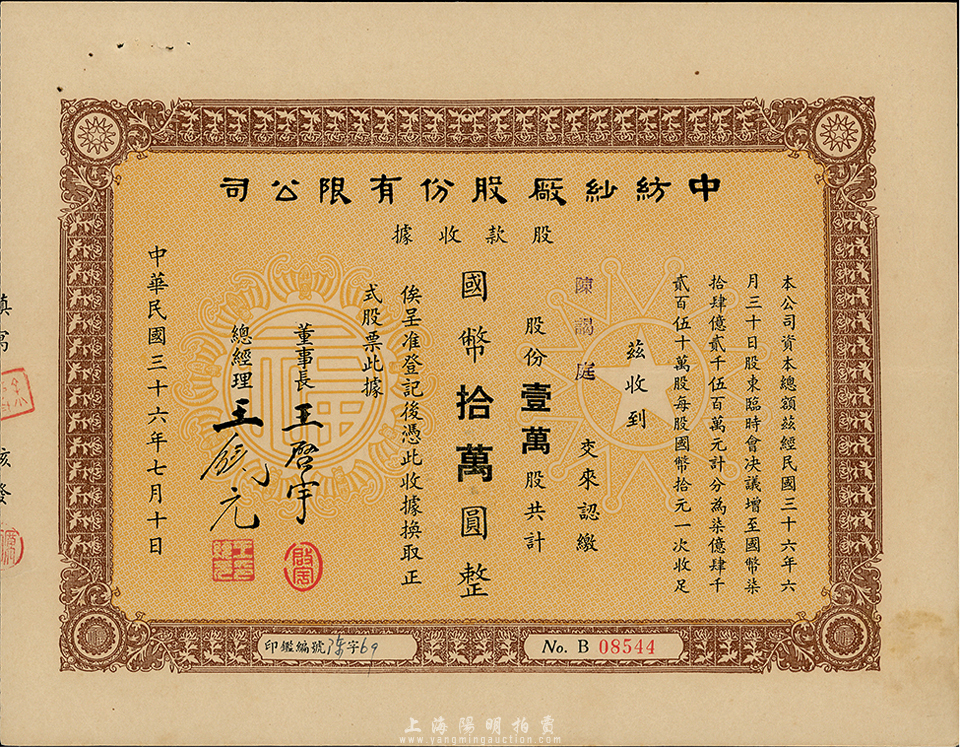 中紡紗廠股份有限公司
股款收據
本公司資本總額茲經民國三十六年六
月三十日股東臨時會決議增至國幣柒
拾肆億貳千伍百萬元計分為柒億肆千
貳百伍十萬股每股國幣拾元一次收足
茲收到
陳謁庭 交來認繳
股份壹萬股共計
國幣拾萬圓整
俟呈准登記後憑此收據換取正
式股票此據
董事長 王啓宇
總經理 王
元
中華民國三十六年七月十日
印鑑編號 字69
No. B 08544
核發
上海陽明拍賣
www.yangmingauction.com